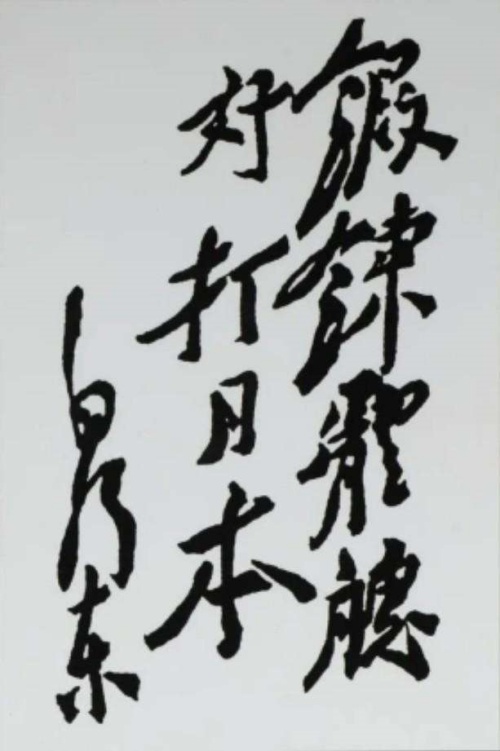 鍛鍊體魄
好打日本
毛泽东